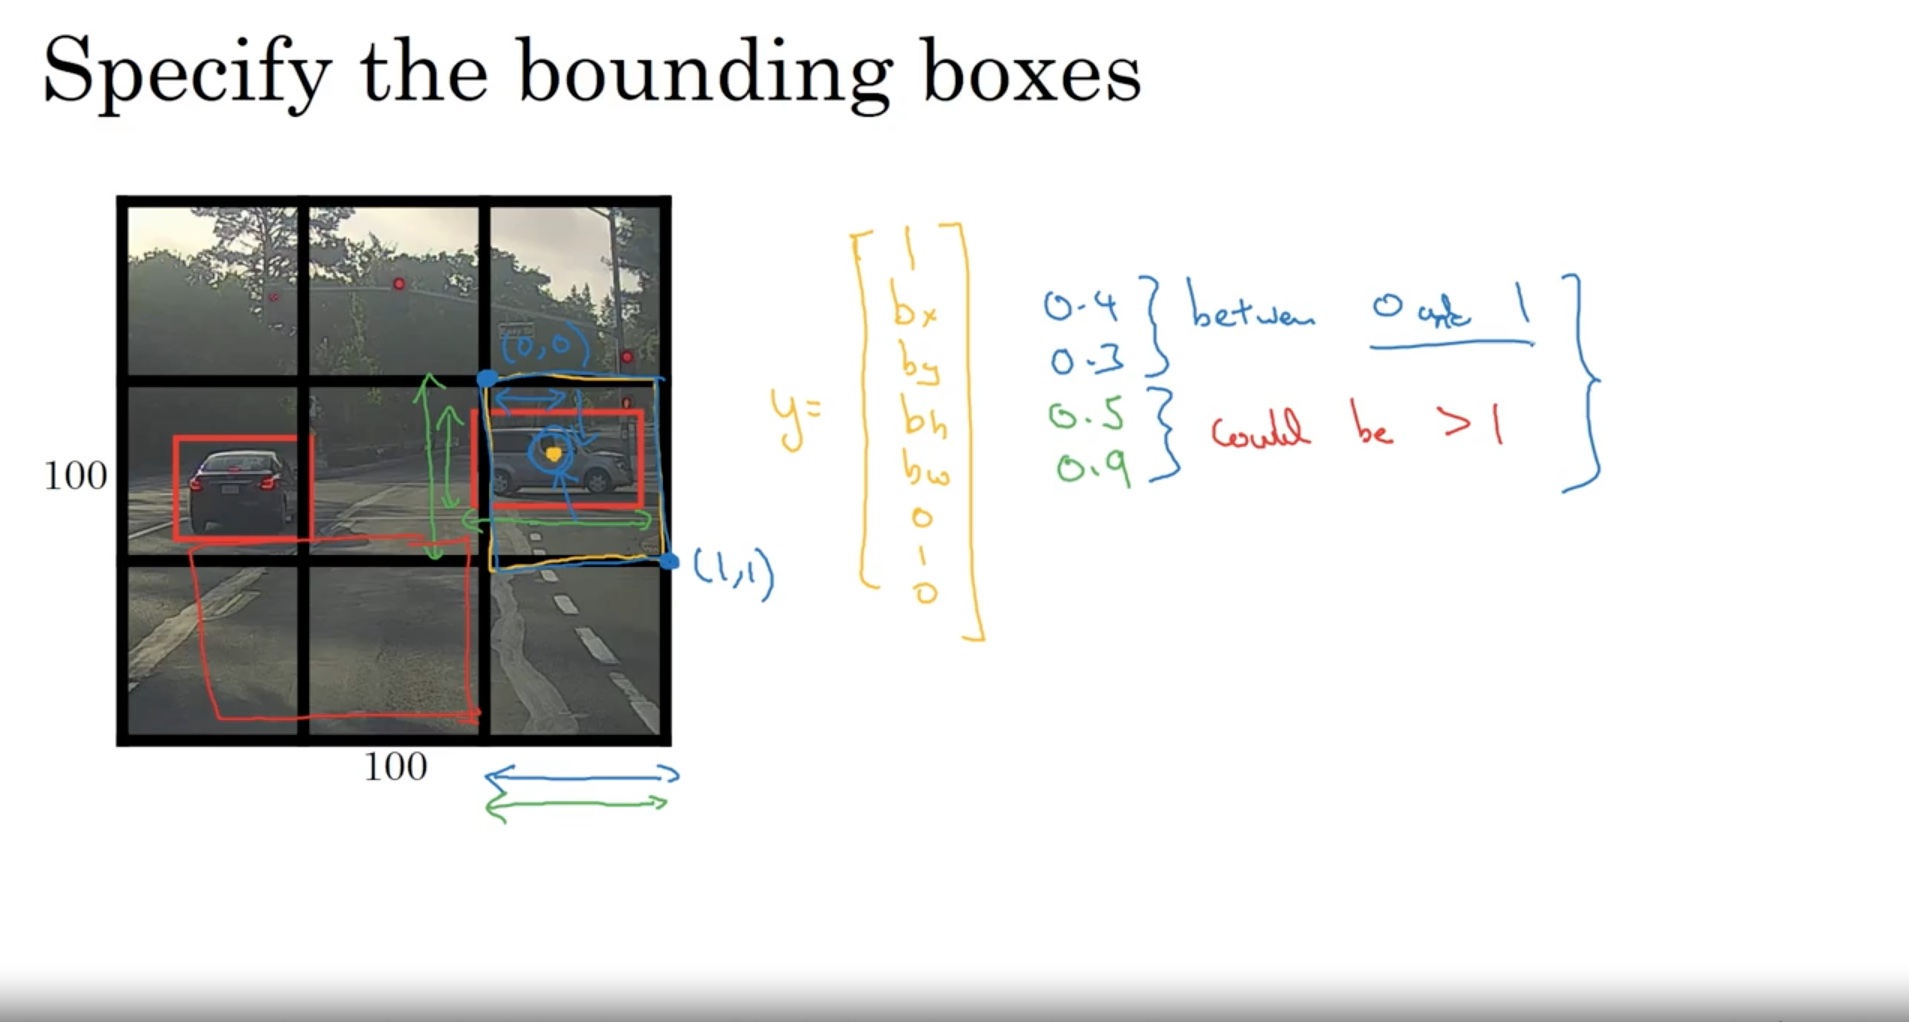 Specify the bounding boxes
(0,0)
100
100
(1,1)
y=
1
bx
by
bh
bw
0
1
0
0.4
0.3
between 0 and 1
0.5
0.9
could be >1